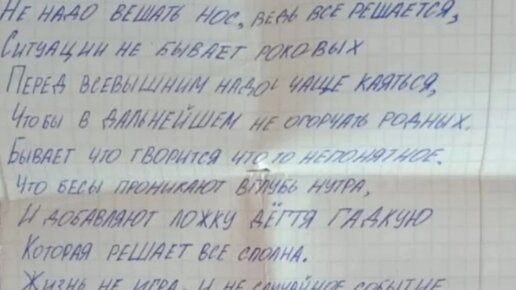 Не надо вешать нос, ведь все решается,
Ситуации не бывает роковых
Перед всевышним надо чаще каяться,
Что бы в дальнейшем не огорчать родных.
Бывает что творится что то непонятное.
Что бесы проникают вглубь нутра,
И добавляют ложку дёгтя гадкую
Которая решает все сполна.
Жизнь не игра, и не случайное событие